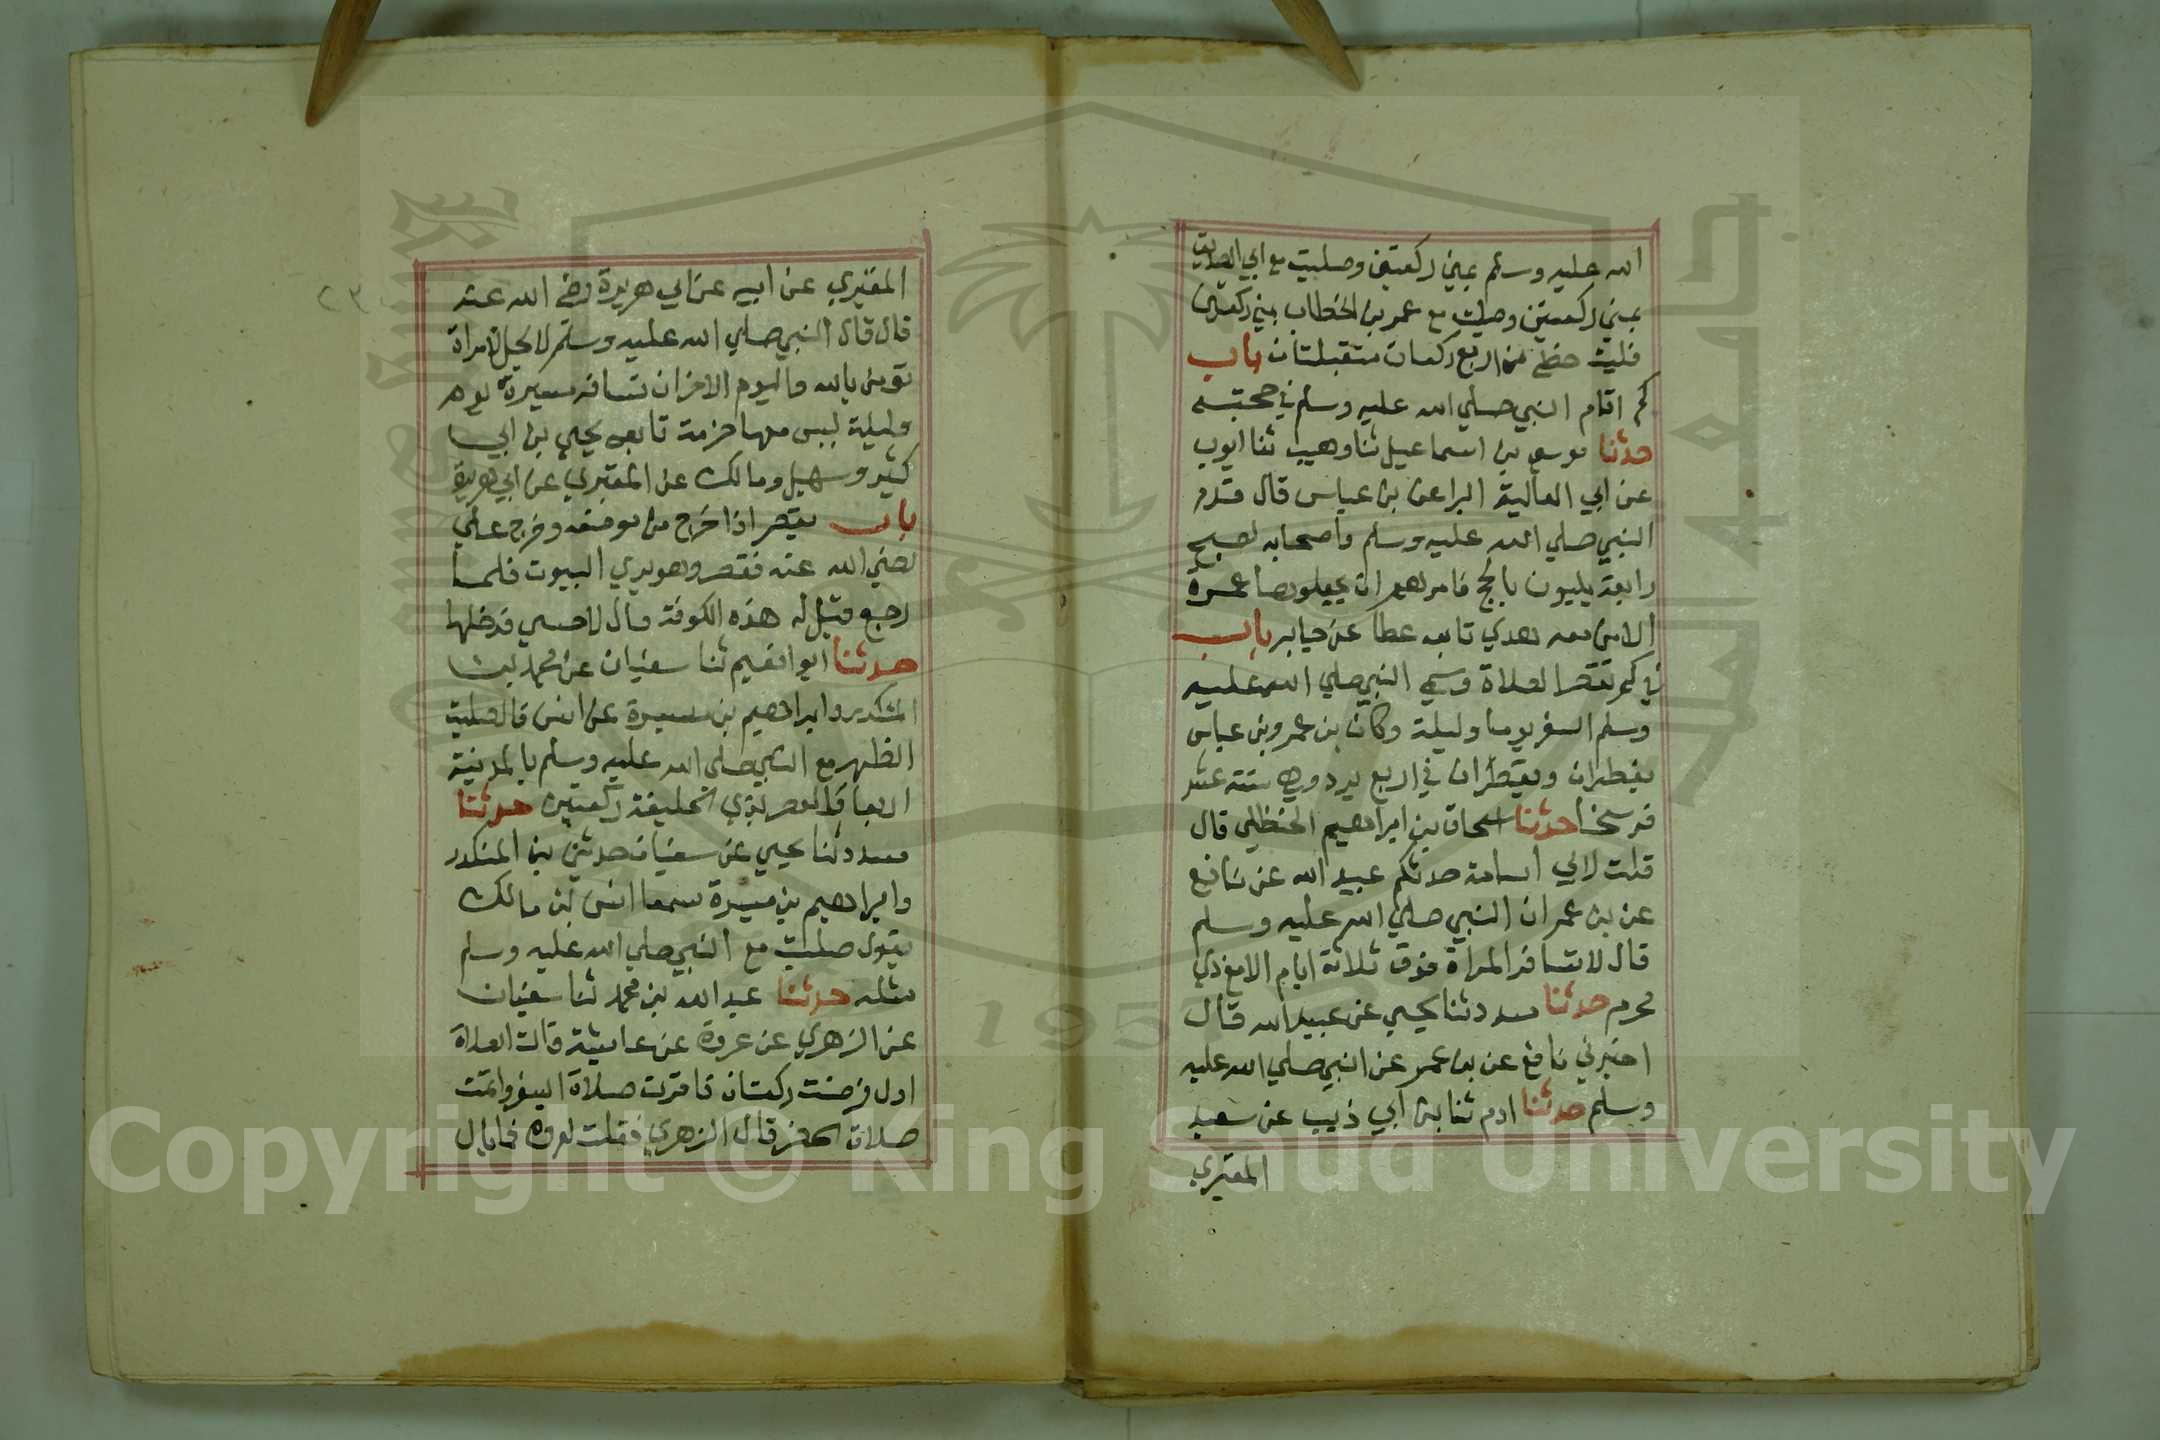 الله عليه وسلم بمني ركعتين وصليت مع ابي الصديق
بمني ركعتين وصليت مع عمر بن الخطاب بمني ركعتين
فليت حظي من اربع ركعات متقبلتان باب
كم اقام النبي صلي الله عليه وسلم في حجته
حدثنا موسي بن اسماعيل ثنا وهيب ثنا ايوب
عن ابي العالية البرا عن بن عباس قال قدم
النبي صلي الله عليه وسلم واصحابه لصبح
رابعة يلبون بالحج فامرهم ان يجعلوها عمرة
الا من معه هدي تابعه عطا عن جابر باب
في كم تقصر الصلاة وسمي النبي صلي الله عليه
وسلم السفر يوما وليلة وكان بن عمر وبن عباس
يفطران ويقصران في اربع برد وهي ستة عشر
فرسخا حدثنا اسحاق بن ابراهيم الحنظلي قال
قلت لابي اسامة حدثكم عبيد الله عن نافع
عن بن عمر ان النبي صلي الله عليه وسلم
قال لا تسافر المراة فوق ثلاثة ايام الا مع ذي
محرم حدثنا مسدد ثنا يحيي عن عبيد الله قال
اخبرني نافع عن بن عمر عن النبي صلي الله عليه
وسلم حدثنا ادم ثنا بن ابي ذيب عن سعيد
المقبري
المقبري عن ابيه عن ابي هريرة رضي الله عنه
قال قال النبي صلي الله عليه وسلم لا يحل لامراة
تومن بالله واليوم الاخر ان تسافر مسيرة يوم
وليلة ليس معها حرمة تابعه يحيي بن ابي
كثير وسهيل ومالك عن المقبري عن ابي هريرة
باب يقصر اذا خرج من موضعه وخرج علي
رضي الله عنه فقصر وهو يري البيوت فلما
رجع قيل له هذه الكوفة قال لا حتي ندخلها
حدثنا ابوا نعيم ثنا سفيان عن محمد بن
المنكدر وابراهيم بن ميسرة عن انس قال صليت
الظهر مع النبي صلي الله عليه وسلم بالمدينة
اربعا والعصر بذي الحليفة ركعتين حدثنا
مسدد ثنا يحيي عن سفيان حدثني بن المنكدر
وابراهيم بن ميسرة سمعا انس بن مالك
يقول صليت مع النبي صلي الله عليه وسلم
مثله حدثنا عبد الله بن محمد ثنا سفيان
عن الزهري عن عروة عن عايشة قالت الصلاة
اول فرضت ركعتان فاقرت صلاة السفر واتمت
صلاة الحضر قال الزهري فقلت لعروه فما بال
٢٣
1957
Copyright © King Saud University